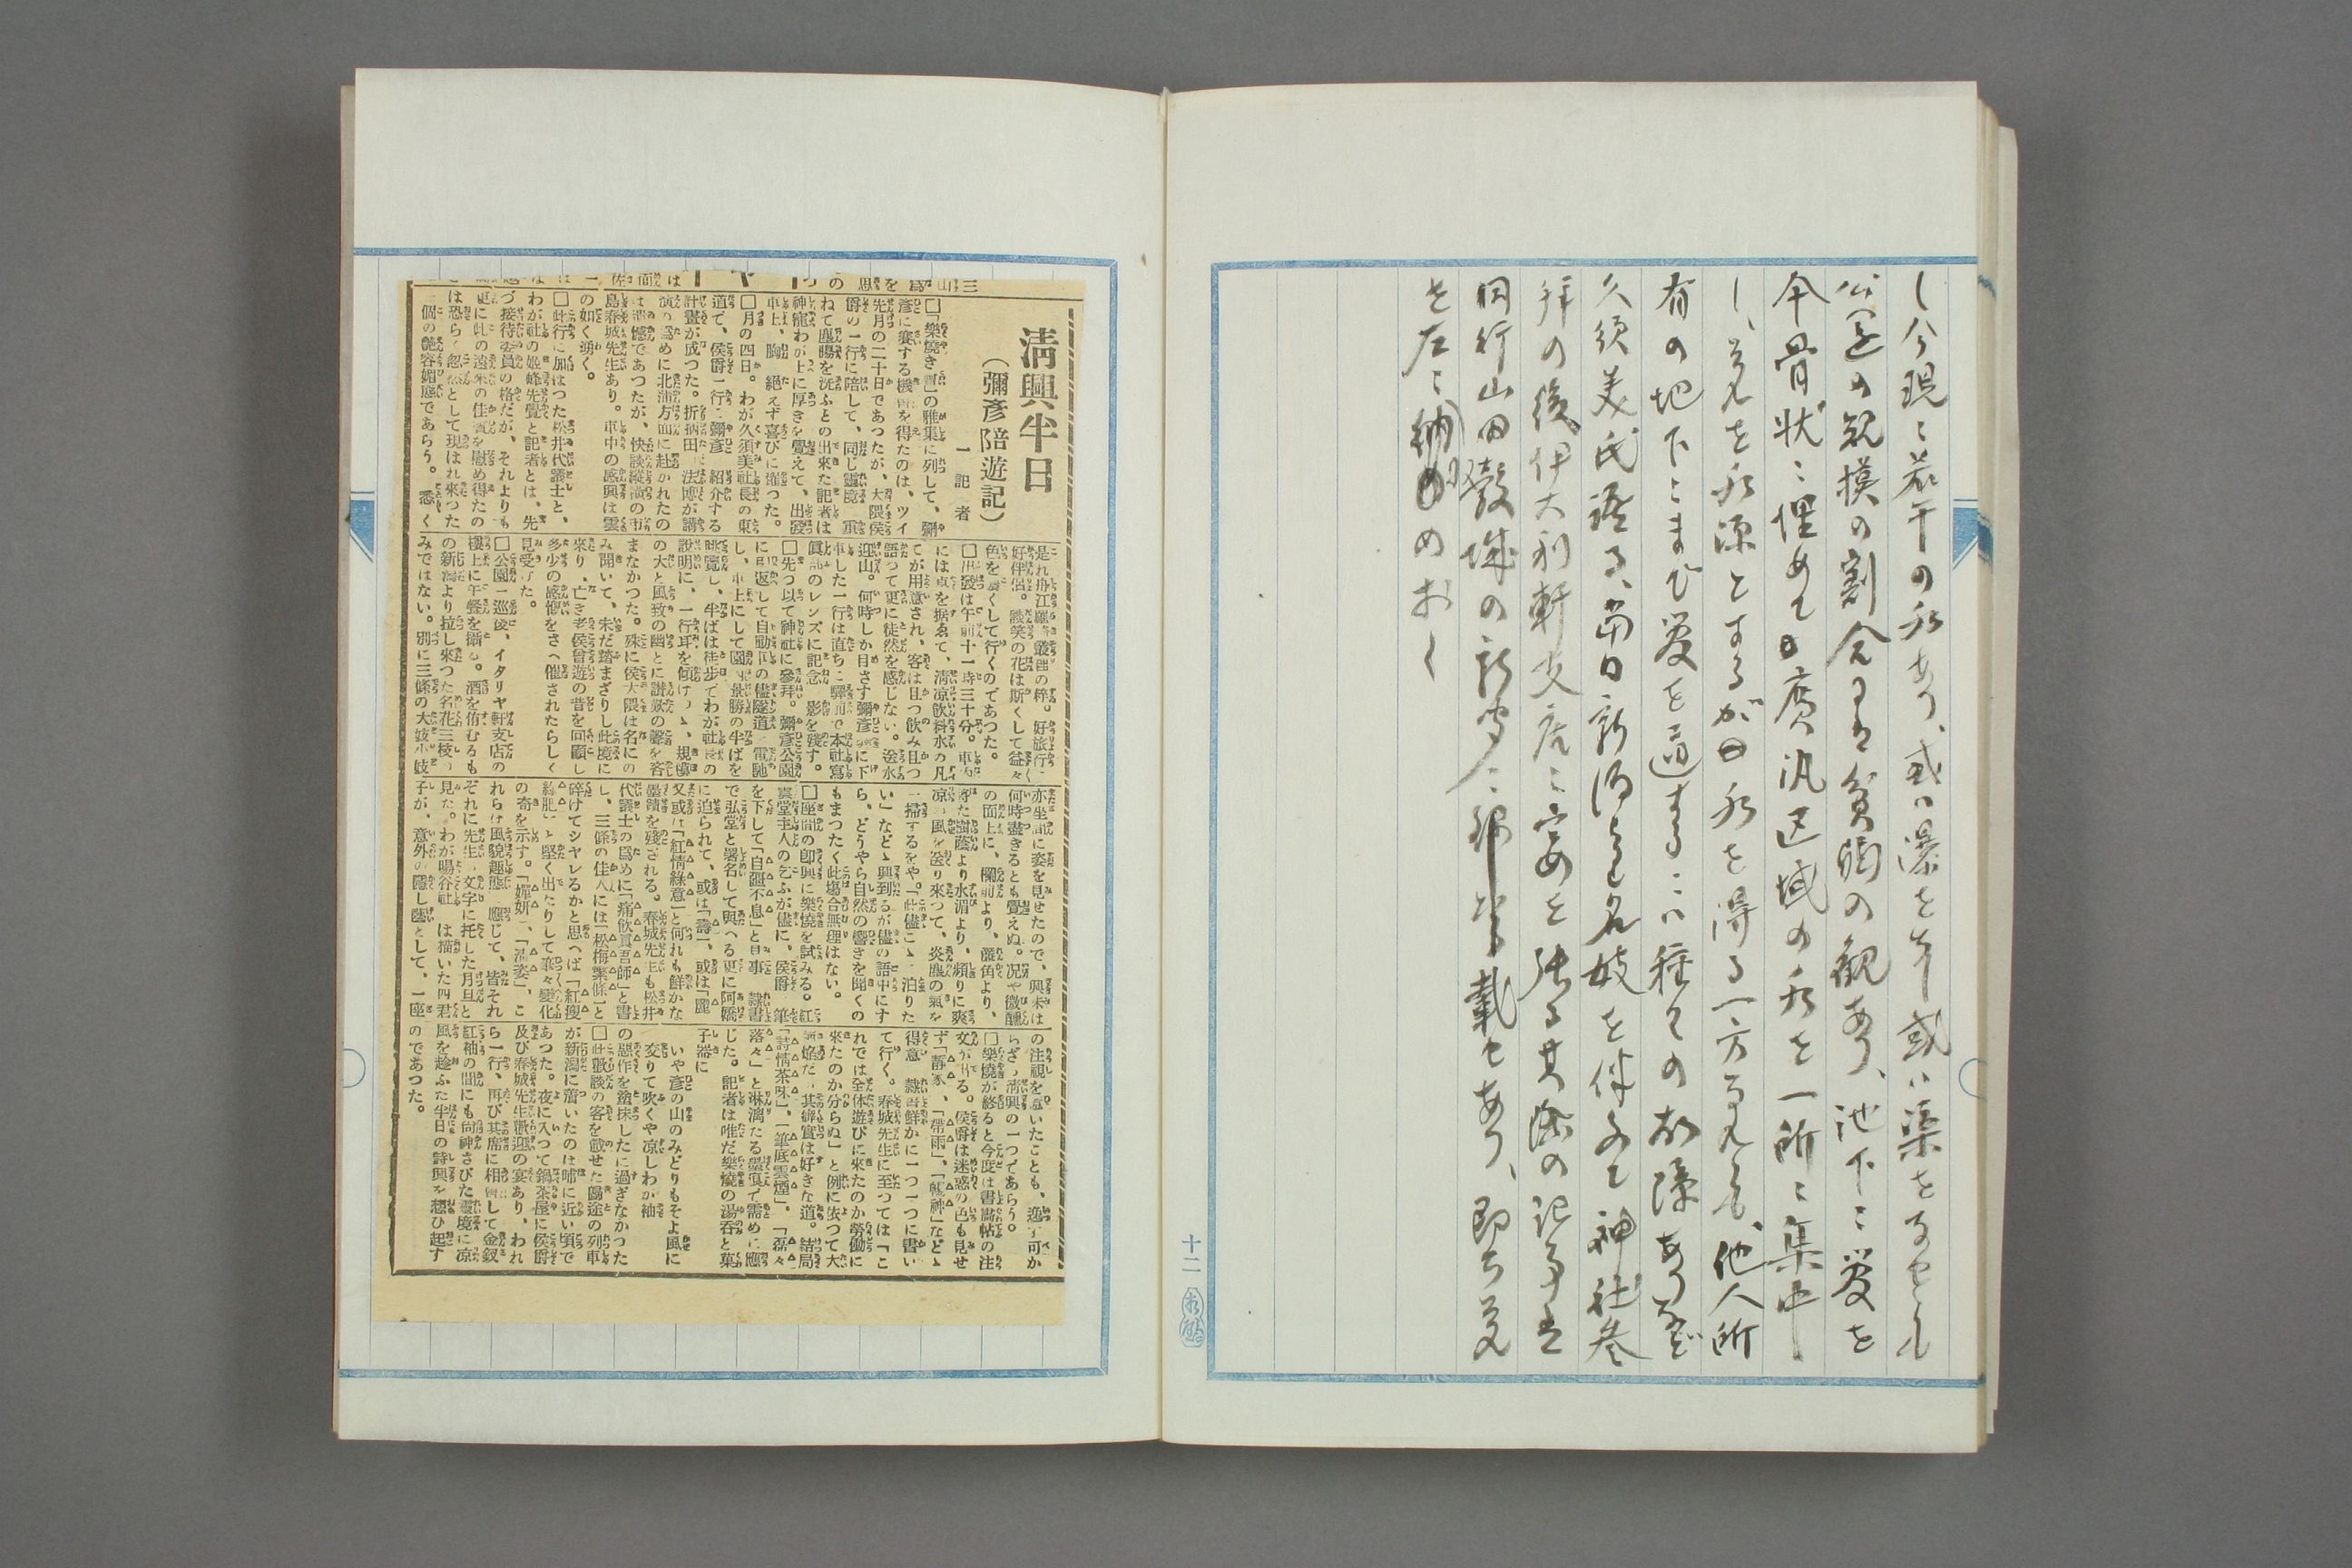 し今現に若干の水あり、或は瀑をなし或は渠をなせとも
公園の規模の割合には貧弱の観あり、池下に管を
し、是を水源とするが水を得る一方なれども、他人所
有の地下にまで管を通するには種々の故障あり
久須美氏語る、当日新潟より名妓を伴ふて神社参
拝の後伊太利軒支店に宴を張る其際の記事は
同行山田穀城の新聞に掲載せあり、即ち是
を左に納めおく
十二
淸興半日
(彌彥陪遊記)
一記者
□「樂燒き會」の雅集に列して、彌
彥に宴する機會を得たのは、ツイ
先月の二十日であつたが、大隈侯
爵の一行に陪して、同じ靈境に重
ねて塵腸を洗ふとの出來た記者は
神寵わが上に厚きを覺えて、出發
車上、胸に絕えず喜びに滿つた。
□月の四日。わが久須美社長の東
道で、侯爵一行に彌彥を紹介する
計畫が成つた。折柄田中法博が講
演の爲めに北浦方面に赴かれたの
は遺憾であつたが、快談縱橫の市
島春城先生あり。車中の感興は雲
の如く湧く。
□此行に加はつた松井代議士と、
わが社の姬峰先覺と記者とは、先
づ接待委員の格だが、それよりも
更に此の遠來の佳賓を慰め得たの
は恐らく忽然として現はれ來つた
一個の艶容媚態であらう。悉く
是れ舟江羅綺叢裡の粹。好旅行に
好伴侶。談笑の花は斯くして益々
色を濃くして行くのであつた。
□出發は午前十一時三十分。車内
には卓を据ゑて、淸凉飲料水の凡
てが用意され、客は且つ飲み且つ
語つて更に徒然を感じない。送水
迎山。何時しか目ざす彌彥驛に下
車した一行は直ちに驛前で本社寫
眞部のレンズに記念の影を殘す。
□先づ以て神社に參拜。彌彥公園
に引返して自動車の儘隧道を電馳
し、車上にして園内景勝の半ばを
眺覽し、半ばは徒步でわが社長の
說明に、一行耳を傾けつゝ、規模
の大と風致の幽とに讃歎の聲を客
まなかつた。殊に侯大隈は名にの
み聞いて、未だ踏まざりし此境に
來り、亡き老侯曾遊の昔を回顧し
多少の感慨をさへ催されたらしく
見受けた。
□公園一巡後、イタリヤ軒支店の
樓上に午餐を攝る。酒を侑むるも
の新潟より拉し來つた名花三枝の
みではない。別に三條の大妓小妓
亦坐間に姿を見せたので、興味は
何時盡きるとも覺えぬ。况や微醺
の面上に、欄前より、簾角より、
將た樹蔭より水湄より、頻りに爽
凉の風を送り來つて、炎塵の氣を
一掃するをや。「此儘こゝに泊りた
い」などゝ興到るが儘の語中にす
ら、どうやら自然の響きを聞くの
もまつたく此塲合無理はない。
□座間の卽興に樂燒を試みる。紅
雲堂主人の乞ふが儘に、侯爵は筆
を下して「自疆不息」と見事に隷書
で弘堂と署名して與へる更に阿嬌
に迫られて、或は「壽」、或は「麗」
又或は「紅情綠意」と何れも鮮かな
墨蹟を殘される。春城先生も松井
代議士の爲めに「痛飮眞吾師」と書
し、三條の佳人には「松梅葉條」と
碎けてシヤレるかと思へば「紅瘦
綠肥」と堅く出たりして襄々變化
の奇を示す。「嬋姸」、「濃姿」、こ
れらは風貌趣態に應じて、皆それ
ぞれに先生の文字に托した月旦と
見た。わが暘谷社長は描いた四君
子が、意外の隱し藝として、一座
の注視を惹いたことも、逸す可か
らざる淸興の一つであらう。
□樂燒が終ると今度は書畵帖の注
文が出る。侯爵は迷惑の色も見せ
ず「靜寂」、「帶雨」、「暢神」などゝ
得意の隷書鮮かに一つ一つに書い
て行く。春城先生に至つては「こ
れでは全体遊びに來たのか勞働に
來たのか分らぬ」と例に依つて大
氣焔だが其癖實は好きな道。結局
「詩情茶味」、「筆底雲煙」、「磊々
落々」と淋漓たる墨痕で需めに應
じた。記者は唯だ樂燒の湯呑と菓
子器に
いや彥の山のみどりもそよ風に
交りて吹くや凉しわが袖
の惡作を塗抹したに過ぎなかつた
□此歡談の客を載せた歸途の列車
が新潟に着いたのは暗に近い頃で
あつた。夜に入つて鍋茶屋に侯爵
及び春城先生歡迎の宴あり、われ
ら一行、再び其席に相會して金釵
紅袖の間にも尙神さびた靈境に凉
風を趁ふた半日の詩興を想ひ起す
のであつた。